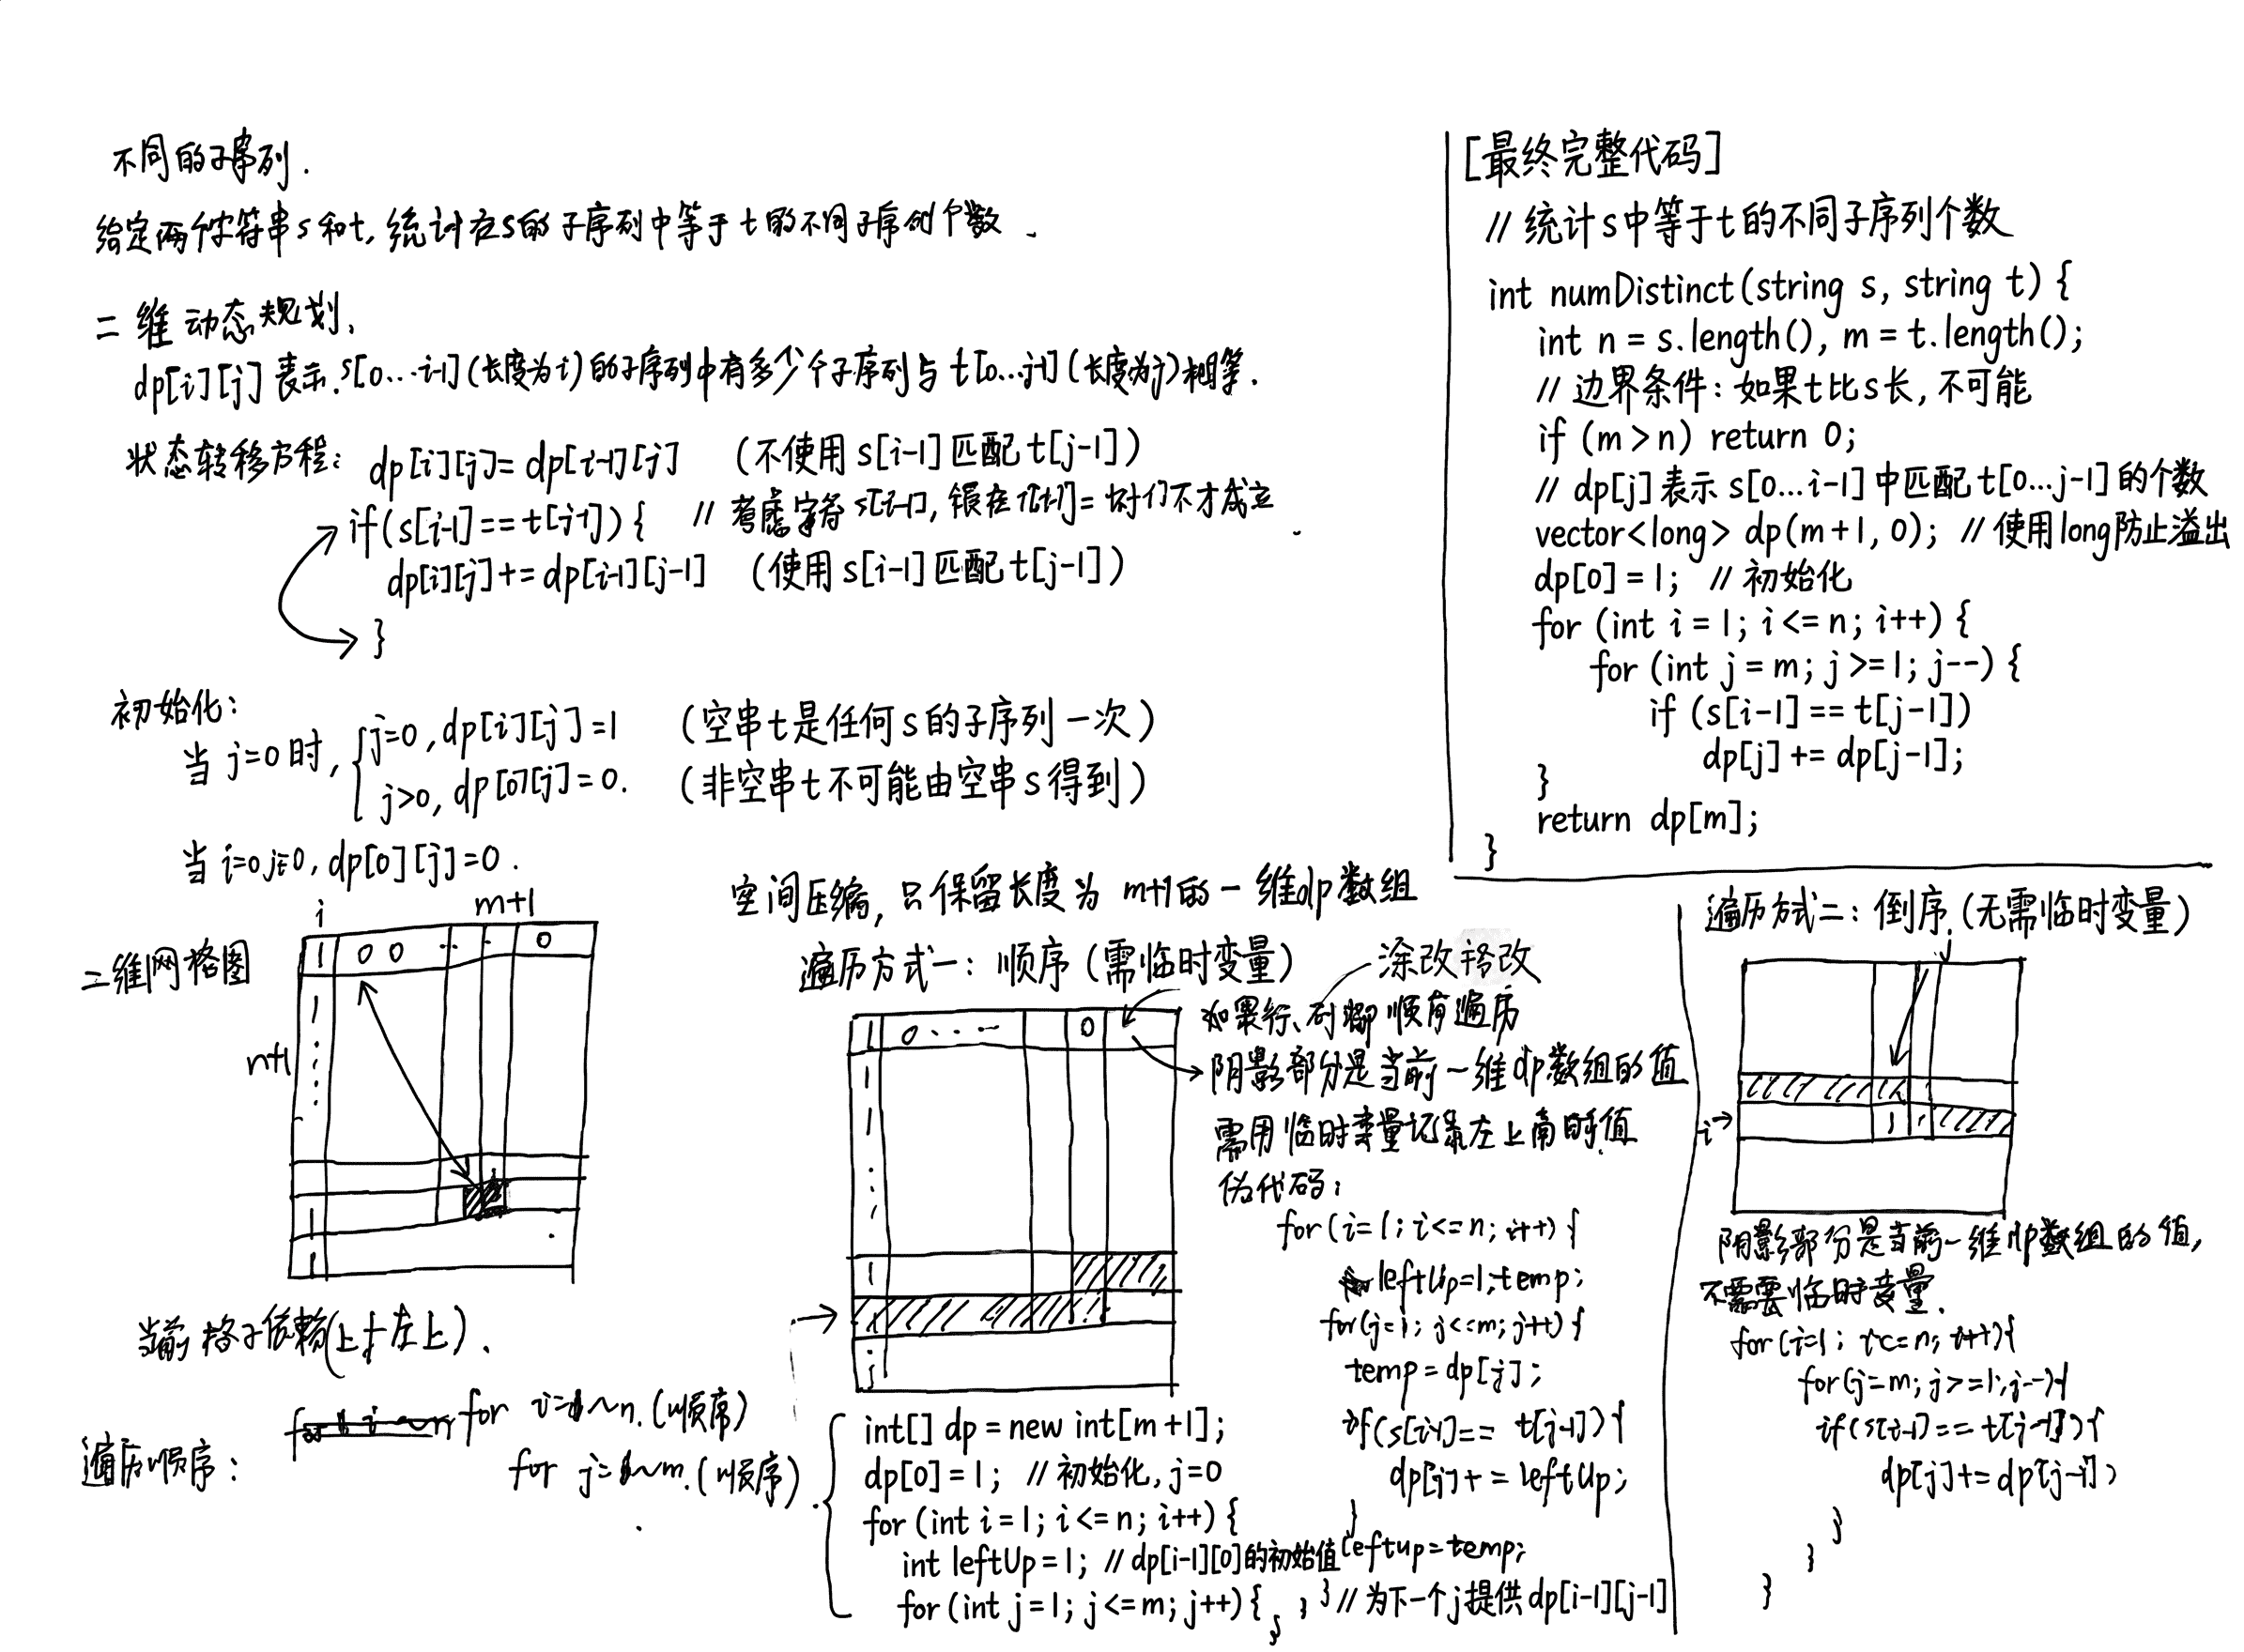 不同的子序列.
给定两个字符串s和t,统计在s的子序列中等于t的不同子序列个数.
二维动态规划.
dp[i][j]表示s[0...i-1](长度为i)的子序列中有多少个子序列与t[0...j-1](长度为j)相等.
状态转移方程: dp[i][j]=dp[i-1][j] (不使用s[i-1]匹配t[j-1])
if(s[i-1]==t[j-1]){ //考虑字符s[i-1],
dp[i][j]+=dp[i-1][j-1] (使用s[i-1]匹配t[j-1])
}
初始化:
当j=0时, j=0,dp[i][j]=1 (空串t是任何s的子序列一次)
j>0,dp[0][j]=0. (非空串t不可能由空串s得到)
当i=0 j≠0,dp[0][j]=0.
二维网格图
i
m+1
1 0 0 ... 0
n+1
当前格子依赖(上+左上).
遍历顺序: for i=1~n.(顺序)
for j=1~m.(顺序).
空间压缩,只保留长度为m+1的一维dp数组
遍历方式一: 顺序(需临时变量)
涂改 修改
1 0... 0
如果行、列都顺序遍历
阴影部分是当前一维dp数组的值
需用临时变量记录左上角的值
伪代码:
for(i=1;i<=n;i++){
leftUp=1;temp;
for(j=1;j<=m;j++){
temp=dp[j];
if(s[i-1]==t[j-1]){
dp[j]+=leftUp;
}
leftup=temp;
} //为下一个j提供dp[i-1][j-1]
int[] dp=new int[m+1];
dp[0]=1; //初始化,j=0
for(int i=1;i<=n;i++){
int leftUp=1; //dp[i-1][0]的初始值
for(int j=1;j<=m;j++){
[最终完整代码]
//统计s中等于t的不同子序列个数
int numDistinct(string s, string t) {
int n = s.length(), m = t.length();
//边界条件:如果t比s长,不可能
if (m>n) return 0;
//dp[j]表示s[0...i-1]中匹配t[0...j-1]的个数
vector<long> dp(m+1, 0); //使用long防止溢出
dp[0]=1; //初始化
for (int i=1; i<=n; i++) {
for (int j=m; j>=1; j--) {
if (s[i-1]==t[j-1])
dp[j]+=dp[j-1];
}
return dp[m];
}
遍历方式二: 倒序.(无需临时变量)
j
i→
阴影部份是当前一维dp数组的值,
不需要临时变量.
for(i=1; i<=n; i++){
for(j=m;j>=1;j--){
if(s[i-1]==t[j-1]){
dp[j]+=dp[j-1]
}
}
}